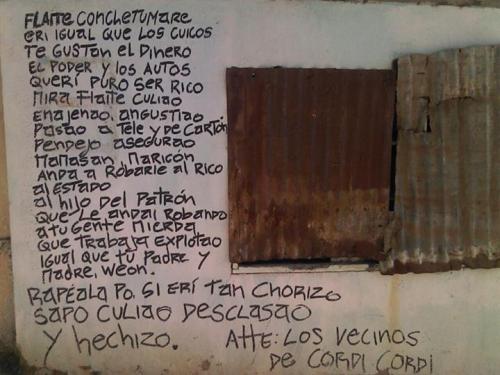 FLAITE CONCHETUMARE
ERI IGUAL QUE LOS CUICOS
TE GUSTAN EL DINERO
EL PODER Y LOS AUTOS
QUERÍ PURO SER RICO
MIRA FLAITE CULIAO
ENAJENAO, ANGUSTIAO
PASAO A TELE Y DE CARTÓN
PENDEJO ASEGURAO
MAMASAN, MARICÓN
ANDA A ROBARLE AL RICO
AL ESTADO
AL HIJO DEL PATRÓN
QUE LE ANDAI ROBANDO
A TU GENTE MIERDA
QUE TRABAJA EXPLOTAO
IGUAL QUE TU PADRE Y
MADRE, WEON.
RAPÉALA PO. SI ERÍ TAN CHORIZO
SAPO CULIAO DESCLASAO
Y HECHIZO.
ATTE: LOS VECINOS
DE CORDI CORDI